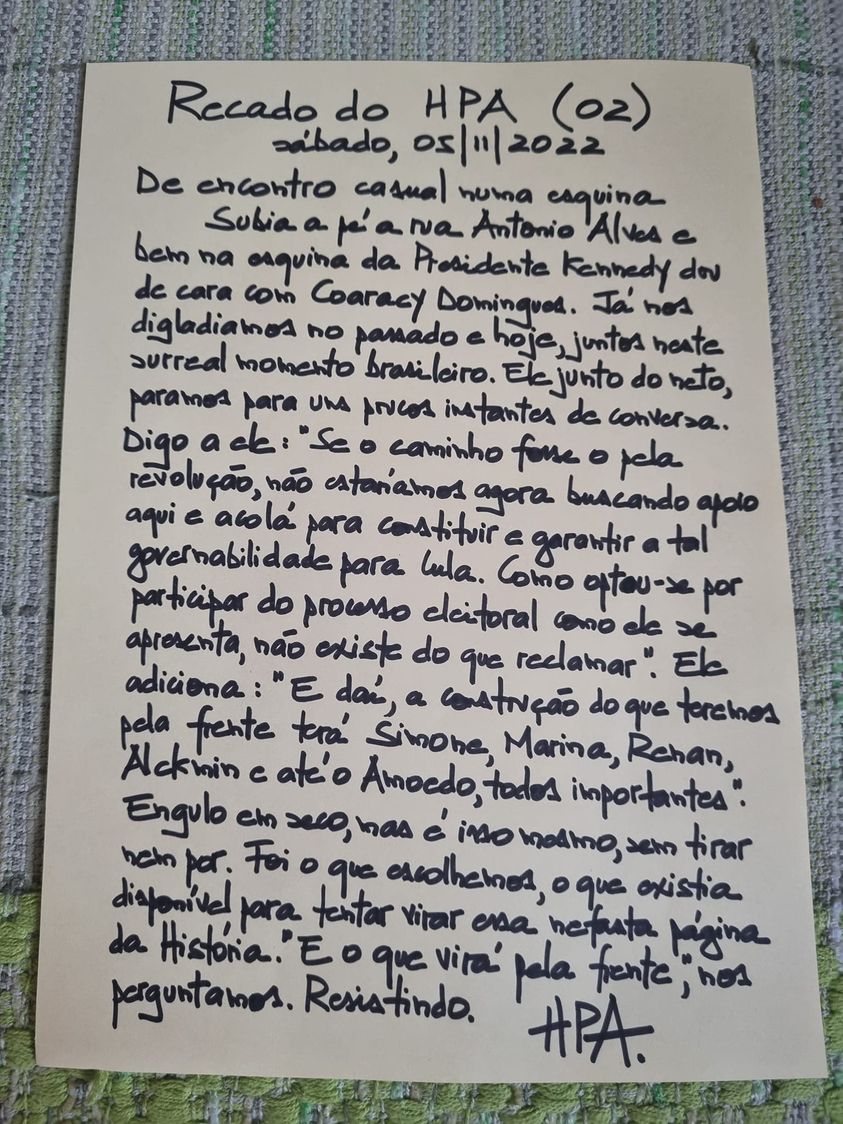 Recado do HPA (02)
sábado, 05/11/2022
De encontro casual numa esquina
Subia a pé a rua Antonio Alves e
bem na esquina da Presidente Kennedy dou
de cara com Coaracy Domingues. Já nos
digladiamos no passado e hoje, juntos neste
surreal momento brasileiro. Ele junto do neto,
paramos para uns poucos instantes de conversa.
Digo a ele: "Se o caminho fosse o pela
revolução, não estaríamos agora buscando apoio
aqui e acolá para constituir e garantir a tal
governabilidade para Lula. Como optou-se por
participar do processo eleitoral como ele se
apresenta, não existe do que reclamar". Ele
adiciona: "E daí, a construção do que teremos
pela frente terá Simone, Marina, Renan,
Alckmin e até o Amoedo, todos importantes".
Engulo em seco, mas é isso mesmo, sem tirar
nem por. Foi o que escolhemos, o que existia
disponível para tentar virar essa nefasta página
da História. "E o que virá pela frente", nos
perguntamos. Resistindo.
HPA.